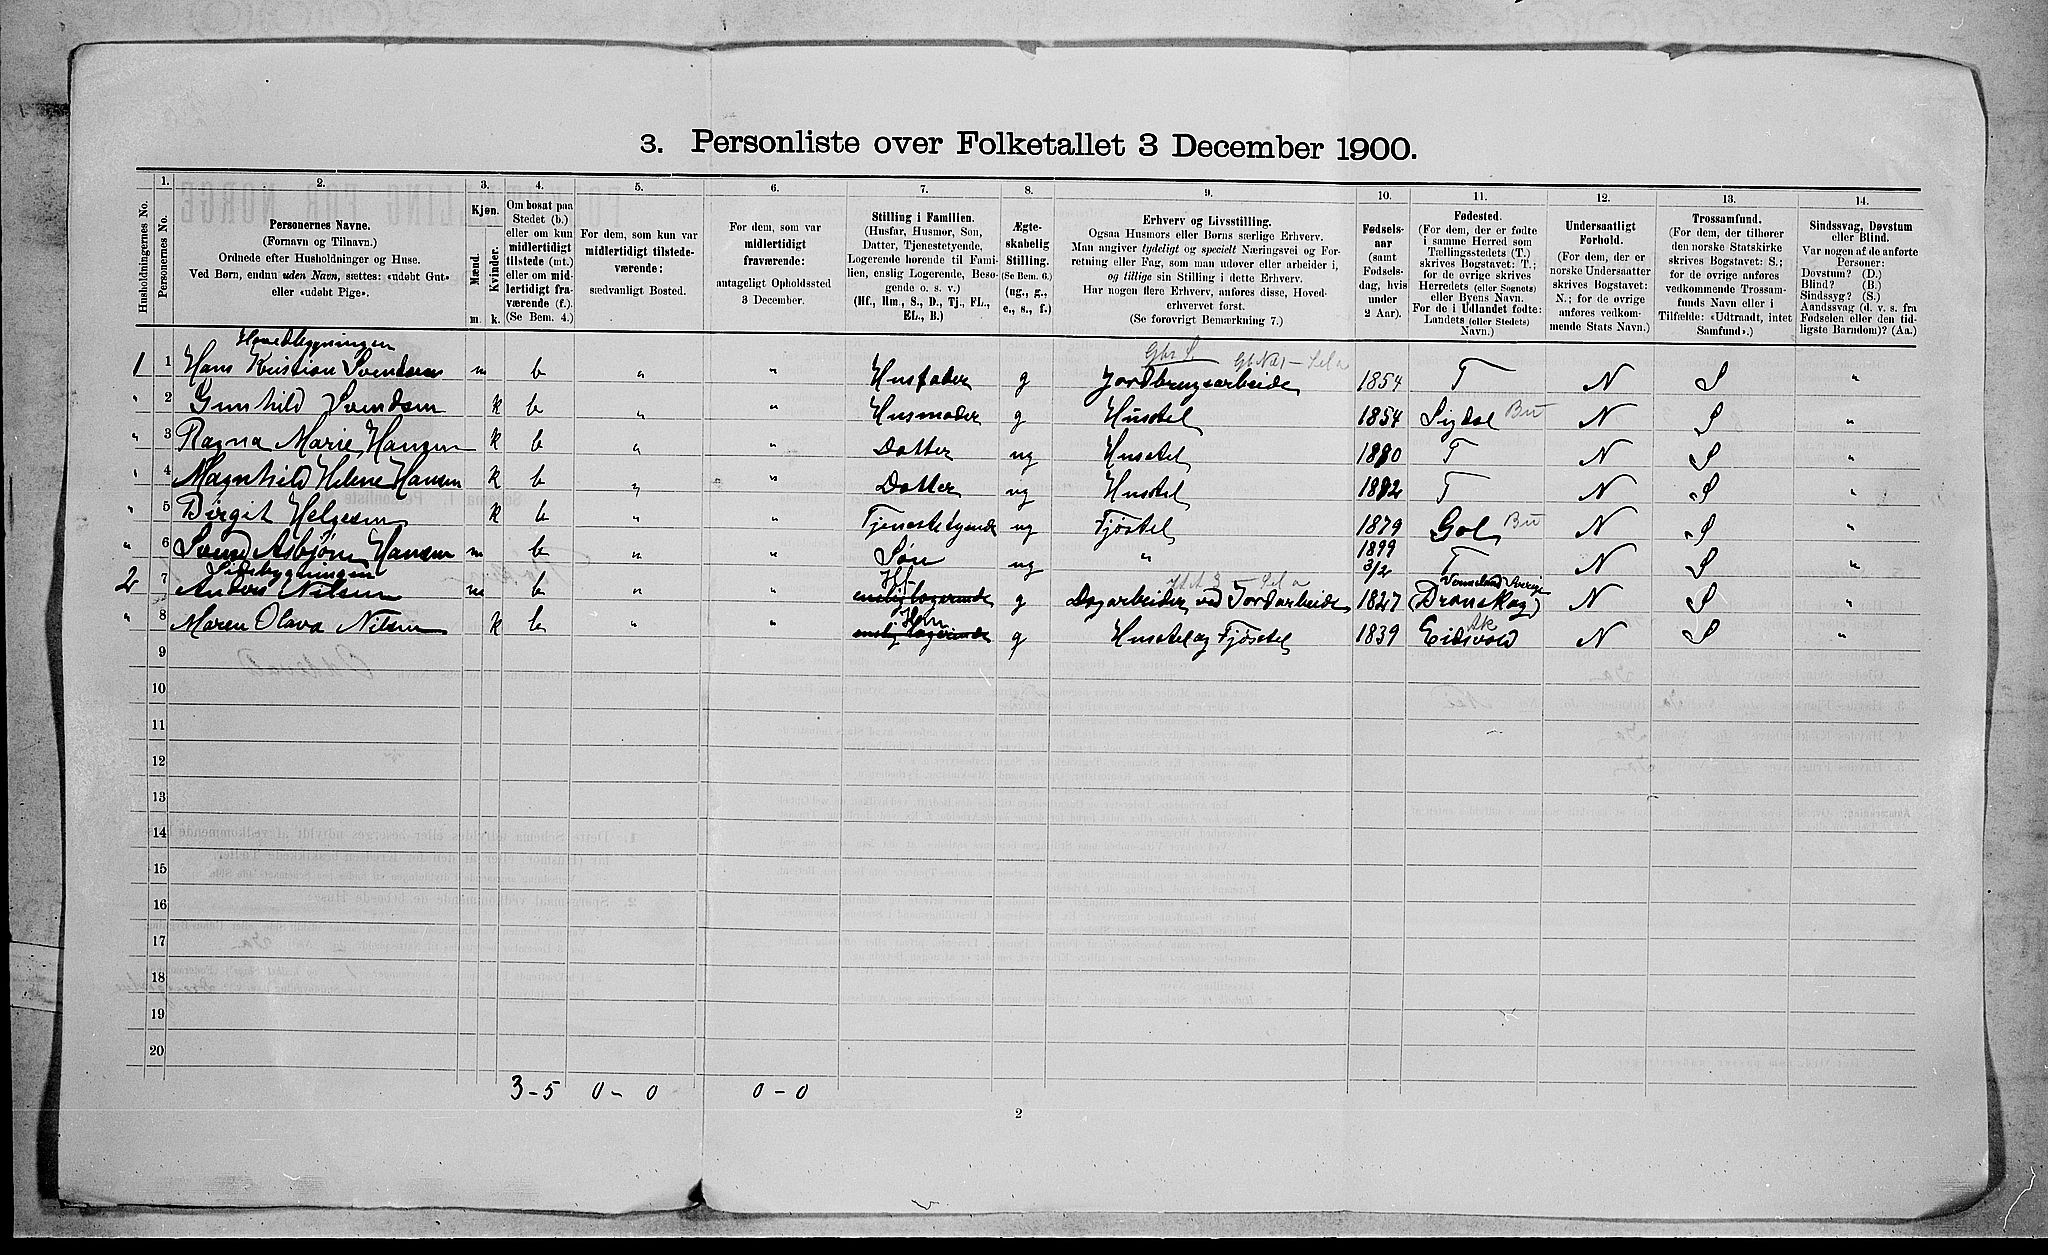 3. Personliste over Folketallet 3 December 1900.
1. 2. 3. 4. 5. 6. 7. 8. 9. 10. 11. 12. 13. 14.
Husholdningernes No.
Personernes No.
Personernes Navne.
(Fornavn og Tilnavn.)
Ordnede efter Husholdninger og Huse.
Ved Børn, endnu uden Navn, sættes: «udøbt Gut»
eller «udøbt Pige».
Kjøn.
Mænd.
Kvinder.
m. k.
Om bosat paa
Stedet (b.)
eller om kun
midlertidigt
tilstede (mt.)
eller om mid-
lertidigt fra-
værende (f.).
(Se Bem. 4.)
For dem, som kun var
midlertidigt tilstede-
værende:
sædvanligt Bosted.
For dem, som var
midlertidigt
fraværende:
antageligt Opholdssted
3 December.
Stilling i Familien.
(Husfar, Husmor, Søn,
Datter, Tjenestetyende,
Logerende hørende til Fami-
lien, enslig Logerende, Besø-
gende o. s. v.)
(Hf., Hm., S., D., Tj., FL.,
EL., B.)
Ægte-
skabelig
Stilling.
(Se Bem. 6.)
(ug., g.,
e., s., f.)
Erhverv og Livsstilling.
Ogsaa Husmors eller Børns særlige Erhverv.
Man angiver tydeligt og specielt Næringsvei og For-
retning eller Fag, som man udøver eller arbeider i,
og tillige sin Stilling i dette Erhverv.
Har nogen flere Erhverv, anføres disse, Hoved-
erhvervet først.
(Se forøvrigt Bemærkning 7.)
Fødsels-
aar
(samt
Fødsels-
dag, hvis
under
2 Aar).
Fødested.
(For dem, der er fødte
i samme Herred som
Tællingsstedets (T.)
skrives Bogstavet: T.;
for de øvrige skrives
Herredets (eller Sognets)
eller Byens Navn.
For de i Udlandet fødte:
Landets (eller Stedets)
Navn.)
Undersaatligt
Forhold.
(For dem, der er
norske Undersaatter
skrives Bogstavet:
N.; for de øvrige
anføres vedkom-
mende Stats Navn.)
Trossamfund.
(For dem, der tilhører
den norske Statskirke
skrives Bogstavet: S.;
for de øvrige anføres
vedkommende Trossam-
funds Navn eller i
Tilfælde: «Udtraadt, intet
Samfund».)
Sindssvag, Døvstum
eller Blind.
Var nogen af de anførte
Personer:
Døvstum? (D.)
Blind? (B.)
Sindssyg? (S.)
Aandssvag (d. v. s. fra
Fødselen eller den tid-
ligste Barndom)? (Aa.)
Hovedbygningen
1 1 Hans Kristian Svendsen m b " " Husfader g Jordbrugsarbeide 1854 T N S "
" 2 Gunhild Svendsen k b " " Husmoder g Husstel 1854 Sigdal Bu N S "
" 3 Ragna Marie Hansen k b " " Datter ug Husstel 1880 T N S "
" 4 Magnhild Helene Hansen k b " " Datter ug Husstel 1882 T N S "
" 5 Birgit Helgesen k b " " Tjenestetyende ug Fjøstel 1879 Gol Bu N S "
" 6 Svend Asbjørn Hansen m b " " Søn ug " 1899 3/2 T N S "
Sidebygningen
2 7 Anders Nilsen m b " " enslig logerende Hf g Dagarbeider ved Jordarbeide 1827 Vermeland Sverige (Dranskog) N S "
" 8 Maren Olava Nilsen k b " " enslig logerende Hm g Husstel og Fjøsstel 1839 Eidsvold Ak N S "
9
10
11
12
13
14
15
16
17
18
19
20
3 - 5 0 - 0 0 - 0
2